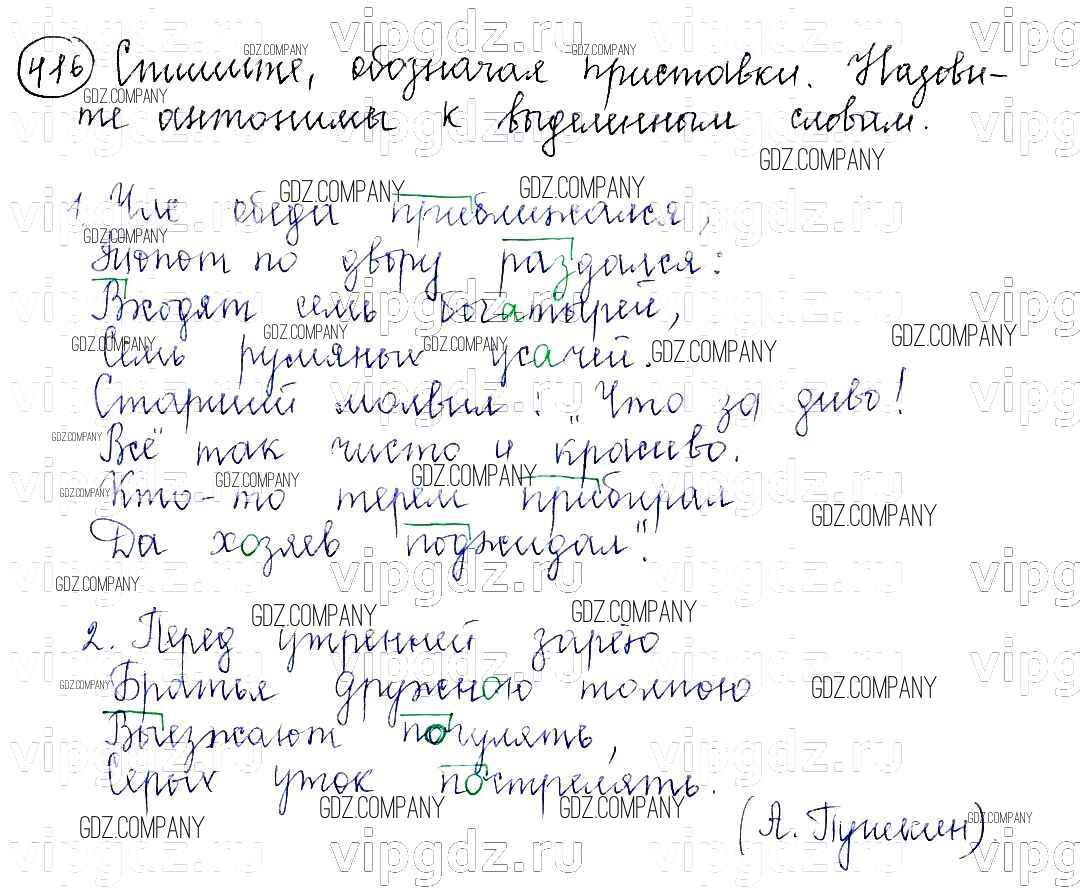 416 Спишите, обозначая приставки. Назови-
те антонимы к выделенным словам.
1. Час обеда приближался,
Топот по двору раздался:
Входят семь богатырей,
Семь румяных усачей.
Старший молвил: "Что за диво!
Всё так чисто и красиво.
Кто-то терем прибирал
Да хозяев поджидал".
2. Перед утренней зарёю
Братья дружною толпою
Выезжают погулять,
Серых уток пострелять.
(А. Пушкин).